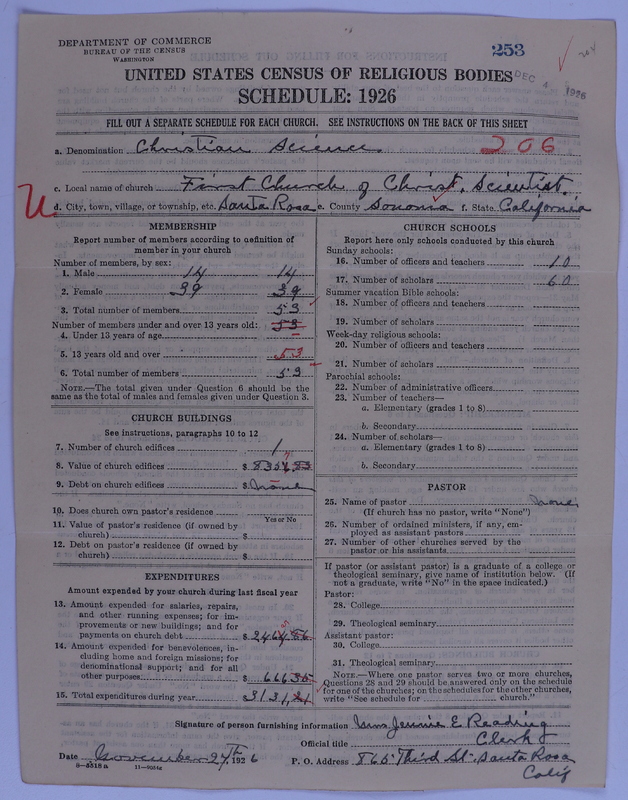 DEPARTMENT OF COMMERCE
BUREAU OF THE CENSUS
WASHINGTON
253
204
DEC 4 1926
UNITED STATES CENSUS OF RELIGIOUS BODIES
SCHEDULE: 1926
FILL OUT A SEPARATE SCHEDULE FOR EACH CHURCH. SEE INSTRUCTIONS ON THE BACK OF THIS SHEET
a. Denomination Christian Science 206
c. Local name of church First Church of Christ, Scientist.
U d. City, town, village, or township, etc. Santa Rosa e. County Sonoma f. State California
MEMBERSHIP
Report number of members according to definition of
member in your church
Number of members, by sex:
1. Male 14 14
2. Female 39 39
3. Total number of members 53
Number of members under and over 13 years old: 53
4. Under 13 years of age –
5. 13 years old and over 53
6. Total number of members 53
NOTE.—The total given under Question 6 should be
the same as the total of males and females given under Question 3.
CHURCH BUILDINGS
See instructions, paragraphs 10 to 12
7. Number of church edifices 1
8. Value of church edifices $
9. Debt on church edifices $ none
10. Does church own pastor's residence
Yes or No
11. Value of pastor's residence (if owned by
church) $
12. Debt on pastor's residence (if owned by
church) $
EXPENDITURES
Amount expended by your church during last fiscal year
13. Amount expended for salaries, repairs,
and other running expenses; for im-
provements or new buildings; and for
payments on church debt $
14. Amount expended for benevolences, in-
cluding home and foreign missions; for
denominational support; and for all
other purposes $
15. Total expenditures during year 3131.21
CHURCH SCHOOLS
Report here only schools conducted by this church
Sunday schools:
16. Number of officers and teachers 10
17. Number of scholars 60
Summer vacation Bible schools:
18. Number of officers and teachers
19. Number of scholars
Week-day religious schools:
20. Number of officers and teachers
21. Number of scholars
Parochial schools:
22. Number of administrative officers
23. Number of teachers—
a. Elementary (grades 1 to 8)
b. Secondary
24. Number of scholars—
a. Elementary (grades 1 to 8)
b. Secondary
PASTOR
25. Name of pastor none
(If church has no pastor, write "None")
26. Number of ordained ministers, if any, em-
ployed as assistant pastors
27. Number of other churches served by the
pastor or his assistants
If pastor (or assistant pastor) is a graduate of a college or
theological seminary, give name of institution below. (If
not a graduate, write "No" in the space indicated.)
Pastor:
28. College
29. Theological seminary
Assistant pastor:
30. College
31. Theological seminary
NOTE.—Where one pastor serves two or more churches,
Questions 28 and 29 should be answered only on the schedule
for one of the churches; on the schedules for the other churches,
write "See schedule for church."
Signature of person furnishing information Mrs Jennie E. Reading
Official title Clerk
Date November 27th 1926 P. O. Address 865 Third St. Santa Rosa
Calif
8—5518 a 11—9034